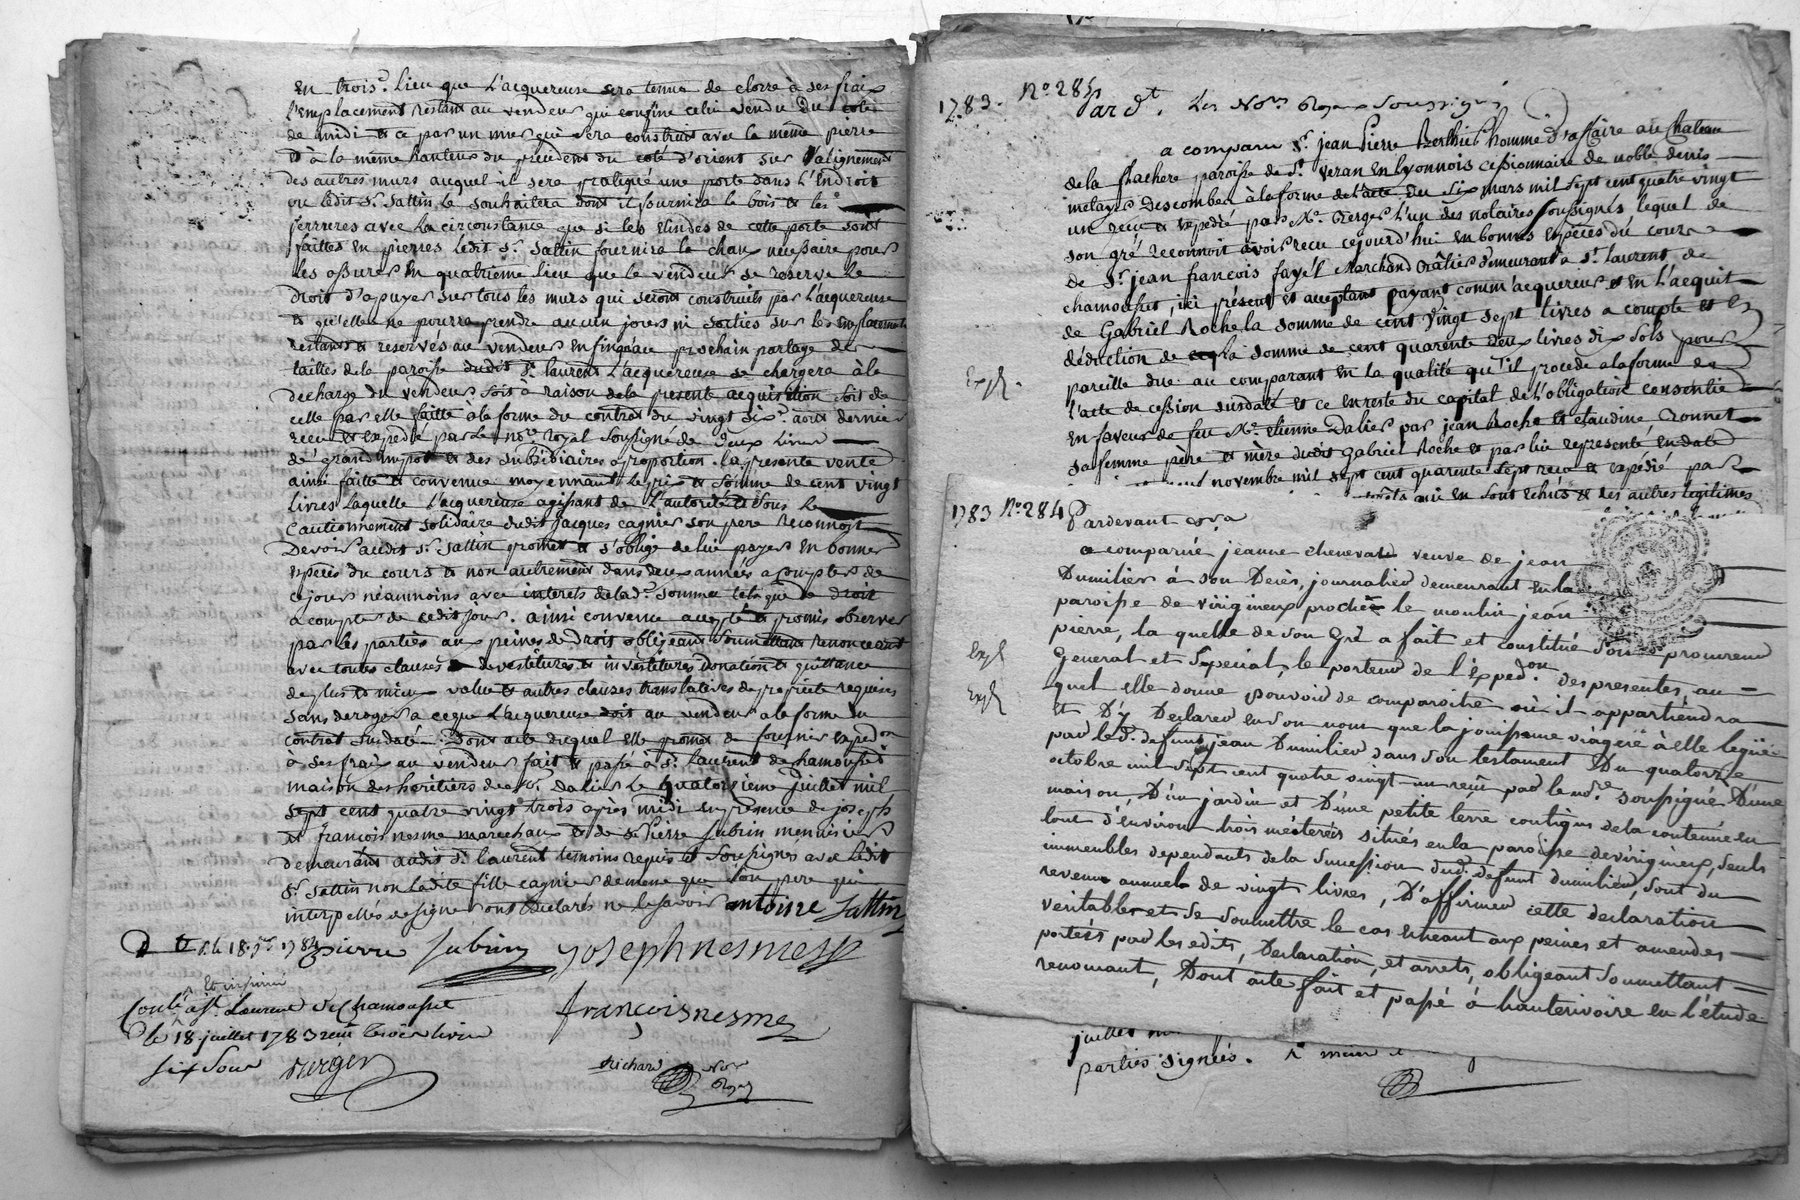 En trois.e lieu que L'acquereuse sera tenue de clorre à ses fraix
l'emplacement restant au vendeur qui confine celui vendu du coté
de midi et ce par un mur qui sera construit avec la même pierre
et à la même hauteur du précédent du coté d'orient sur l'alignement
des autres murs auquel il sera pratiqué une porte dans l'Endroit
ou ledit Sr. Sattin le souhaitera dont il fournira le bois et les
ferrures avec la circonstance que si les Elindes de cette porte sont
faittes en pierres ledit Sr. Sattin fournira la chaux nécessaire pour
les assurer En quatrieme lieu que le vendeur se reserve le
droit d'apuyer sur tous les murs qui seront construits par l'acquereuse
et qu'elle ne pourra prendre aucun jours ni sorties sur les Emplacements
restants et reservés au vendeur Enfin qu'au prochain partage des
tailles de la paroisse dudit St. laurent L'acquereuse se chargera à la
decharge du vendeur soit à raison de la presente acquisition soit de
celle par elle faitte à la forme du contrat du vingt six aout dernier
recu et expedié par le nore. royal soussigné de deux livres
de grand impot et des subsidiaires a proportion. la presente vente
ainsi faitte et convenue moyennant le prix et somme de cent vingt
livres laquelle L'acquereuse agissant de L'autorité et sous le
cautionnement solidaire dudit jacques cagnier son pere reconnoit
Devoir audit Sr. Sattin promet et s'oblige de lui payer En bonnes
especes du cours et non autrement dans deux années a compter de
ce jour néanmoins avec interets de lad.e somme tels que de droit
a compter de cedit jour. ainsi convenu accepté et promis observer
par les parties aux peines de droit obligeant soumettant renonceant
avec toutes clauses de devestitures et investitures donation et quittance
de plus et mieux value et autres clauses translatives de propriété requises
sans deroger a ce que L'acquereuse doit au vendeur a la forme du
contrat susdaté. Dont acte duquel elle promet de fournir expédon
à ses frais au vendeur fait et passé à St. Laurent de chamousset
maison des héritiers de Sr. dalier le quatorzieme juillet mil
sept cent quatre vingt trois après midi en présence de joseph
et françois nesme marechaux et de Sr. Pierre Subrin menuisier
demeurants audit St. laurent temoins requis et soussignés avec ledit
Sr. Sattin non ladite fille cagnier de meme que son pere qui
interpellés de signer ont declarés ne le savoir antoine Sattin
pierre subrin joseph nesme
Et insinué
Conlé. à St. Laurent de Chamousset
françois nesme
le 18 juillet 1783 reçu trois livres
six sous Berger
Richard Nore Royal
1783. No. 285
Par dt. Les Nores Royaux Soussignés
a comparu Sr. jean Pierre Berthier homme d'affaire au Chateau
de la flachere paroisse de St. Veran En Lyonnois cessionnaire de noble denis
melayer Descombes à la forme de l'acte du six mars mil sept cent quatre vingt
un recu et expédié par Me. Berger l'un des notaires soussignés lequel de
son gré reconnoit avoir recu cejourd'hui en bonnes espèces du cours
de Sr. jean francois fayél Marchand Drâtier demeurant à St. laurent de
chamousset, ici présent et acceptant payant comm'acquereur et en l'acquit
de Gabriel Roche la somme de cent vingt sept livres a compte et en
déduction de la somme de cent quarente deux livres dix sols pour
pareille due au comparant En la qualité qu'il procede a la forme de
Expé.
l'acte de cession susdaté et ce en reste du capital de l'obligation consentie
en faveur de feu Me. Etienne Dalier par jean Roche et claudine Ronnet
sa femme père et mère dudit Gabriel Roche et par lui representé en date
novembre mil sept cent quarente sept recu et expédié par
qui en sont echus et des autres legitimes
1783 No. 284
Pardevant
a comparüe jeanne chenevat veuve de jean
Dumilier à son Décès, journalier demeurant en la
paroisse de virigineux proche le moulin jean
pierre, la quelle de son Gré a fait et constitué son procureur
Expé
General et Special, le porteur de l'Expedon. des presentes, au
Expé
quel elle donne pouvoir de comparoitre où il appartiendra
et D'y Declarer en son nom que la jouissance viagere à elle leguée
par led. defunt jean Dumilier dans son testament Du quatorze
octobre mil sept cent quatre vingt un reçu par le nore. soussigné, D'une
maison, D'un jardin et D'une petite terre contigus de la contenue en
tout d'environ trois mesterées situés en la paroisse de virigineux, seuls
immeubles dependants de la succession dud. defunt dumilier, sont du
revenu annuel de vingt livres, D'affirmer cette declaration
veritable et de soumettre le cas echeant aux peines et amendes
portées par les edits, Declaration, et arrets, obligeant soumettant
renonceant, Dont acte fait et passé à hauterivoire en l'étude
juillet
parties signées.